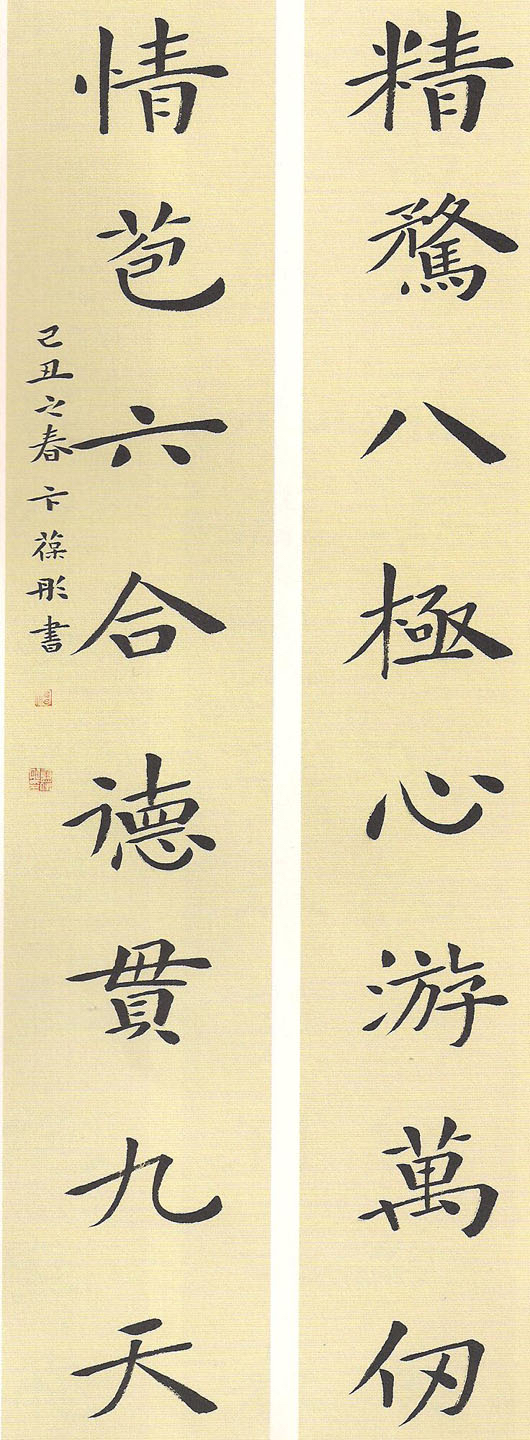 精鶩八極心游萬仞
情苞六合德貫九天
己丑之春卞葆彤書